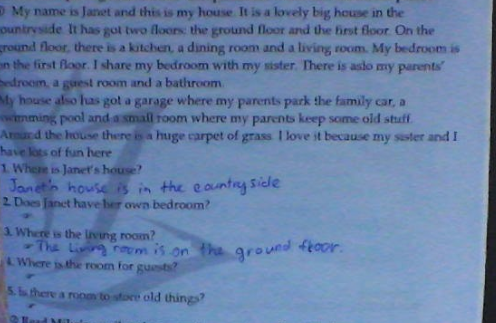 ) My name is Janet and this is my house. It is a lovely big house in the
countryside. It has got two floors: the ground floor and the first floor. On the
ground floor, there is a kitchen, a dining room and a living room. My bedroom is
on the first floor. I share my bedroom with my sister. There is aslo my parents'
bedroom, a guest room and a bathroom.
My house also has got a garage where my parents park the family car, a
swimming pool and a small room where my parents keep some old stuff.
Around the house there is a huge carpet of grass. I love it because my sister and I
have lots of fun here
1. Where is Janet's house?
Janet's house is in the countryside
2. Does Janet have her own bedroom?
3. Where is the living room?
The Living room is on the ground floor.
4. Where is the room for guests?
5. Is there a room to store old things?
② Read